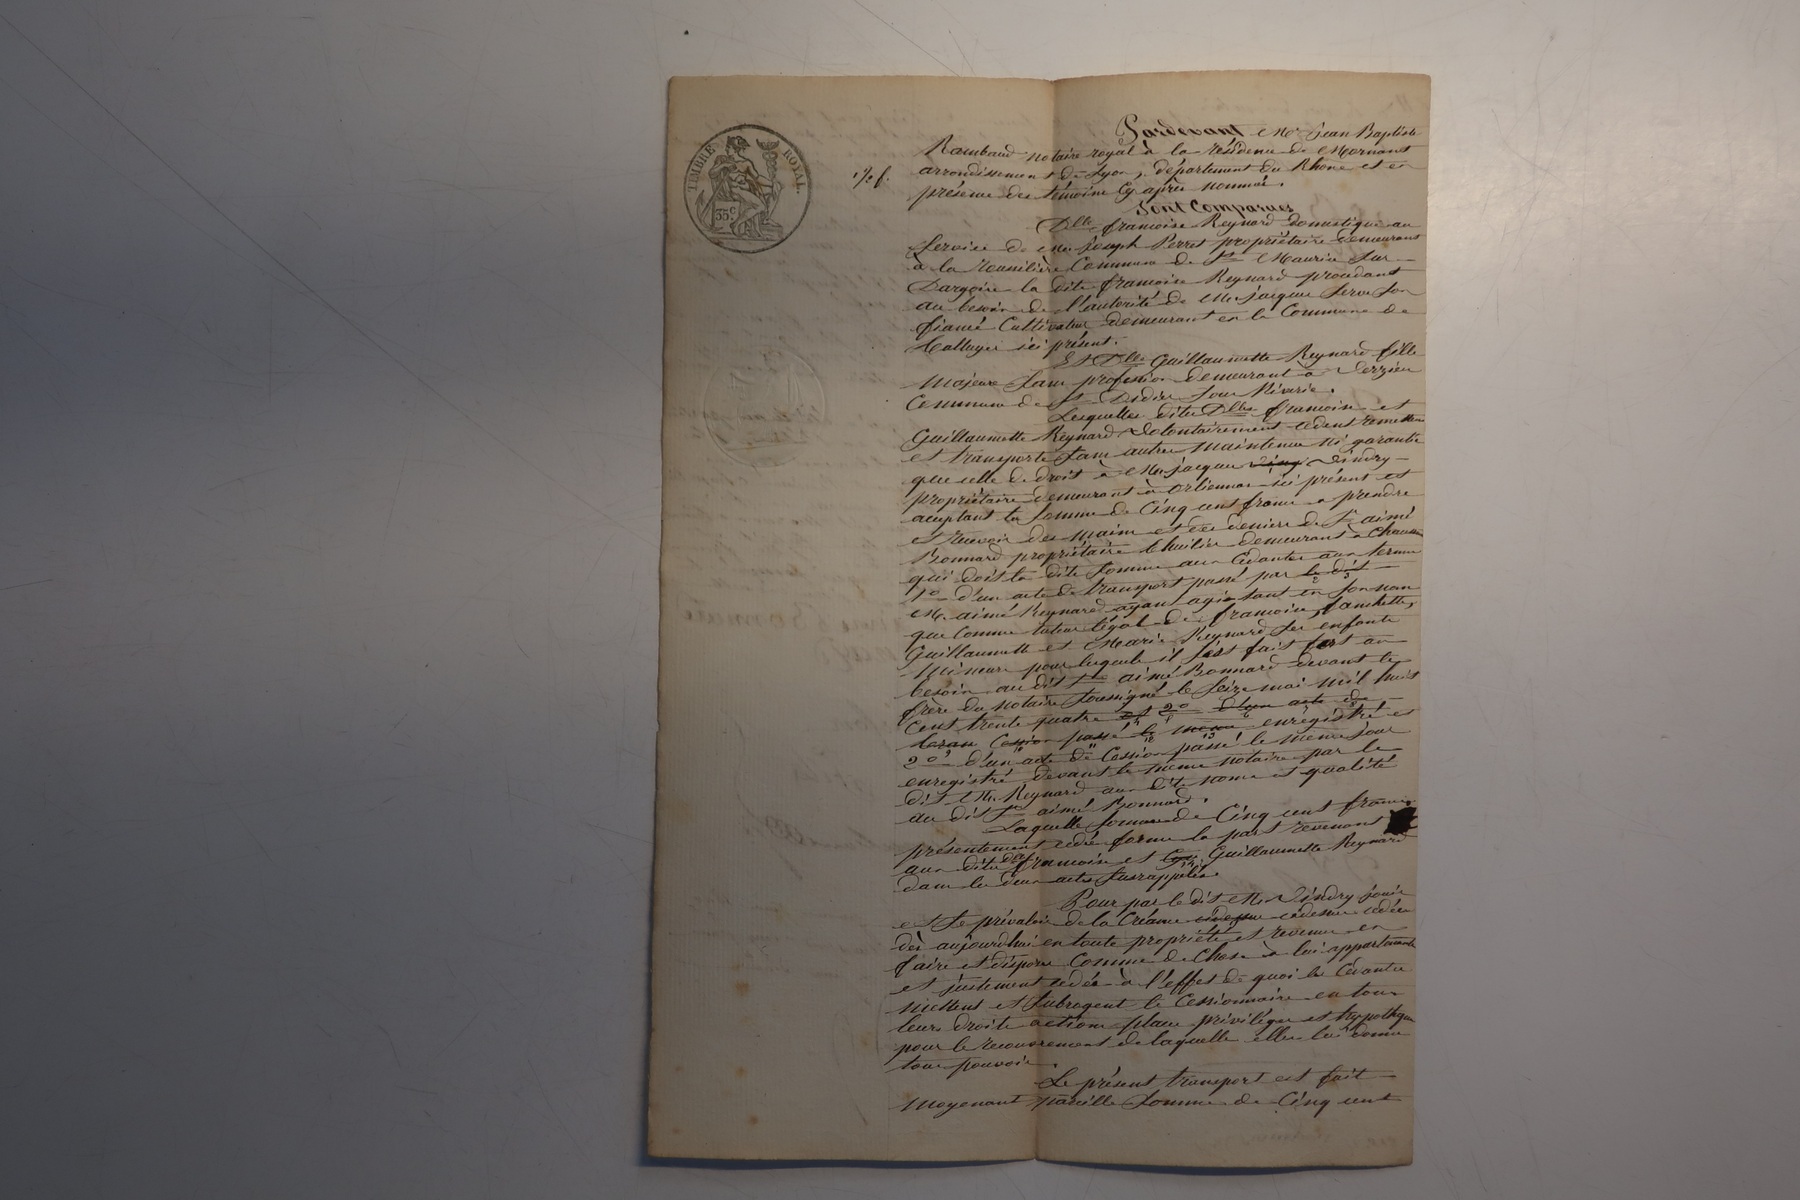 TIMBRE ROYAL.
35c
Pardevant Me Jean Baptiste
Rambaud notaire royal à la résidence de Mornant
arrondissement de Lyon, département du Rhône et en
présence des témoins Cy après nommés.
Sont Comparues
Dlle françoise Reynard domestique au
Service de Mr Joseph Perret propriétaire demeurant
à la Commune de St Maurice Sur
Dargoire la dite françoise Reynard procédant
au besoin de l'autorité de Mr Jacque Serve Son
fiancé Cultivateur demeurant en la Commune de
ici présent.
Et Dlle Guillaumette Reynard fille
Majeure Sans profession demeurant à
Commune de St Didier Sous Riverie.
Lesquelles dites Dlles françoise et
Guillaumette Reynard Volontairement cèdent remettent
et transporte Sans autre maintenue ni garantie
que celle de droit à Mr Jacque Vindry
propriétaire demeurant à Orliénas ici présent et
acceptant la Somme de Cinq cent francs a prendre
et recevoir des mains et des deniers de Sr aimé
Bonnard propriétaire demeurant à Chaussan
qui doit la dite Somme aux Cédantes aux termes
1o d'un acte de transport passé par le dit
Mr aimé Reynard ayant agi tant en Son nom
que Comme tuteur légal de françoise, fanchette,
Guillaumette et Marie Reynard Ses enfants
Mineurs pour lesquels il s'est fait fort au
besoin au dit Sr aimé Bonnard devant le
frère du notaire Soussigné le Seize mai mil huit
Cent trente quatre et 2o d'un acte de
Cession passé le meme enrégistré et
2o d'un acte de Cession passé le meme jour
enregistré devant le meme notaire par le
dit Mr Reynard aux dits noms et qualités
au dit Sr aimé Bonnard.
Laquelle Somme de Cinq cent francs
présentement cédée forme la part revenant
aux dites Dlles françoise et Guillaumette Reynard
dans les deux actes Susrappelés.
Pour par le dit Mr Vindry jouir
et Se prévaloir de la Créance cidessus cédée
dès aujourdhui en toute propriété et revenus en
faire et disposer Comme de Chose à lui appartenante
et justement cédée à l'effet de quoi les Cédantes
Mettent et Subrogent le Cessionnaire en tous
leurs droits actions place privilèges et hypothèques
pour le recouvrement de laquelle elles lui donne
tous pouvoirs.
Le présent transport est fait
Moyenant pareille Somme de Cinq cent